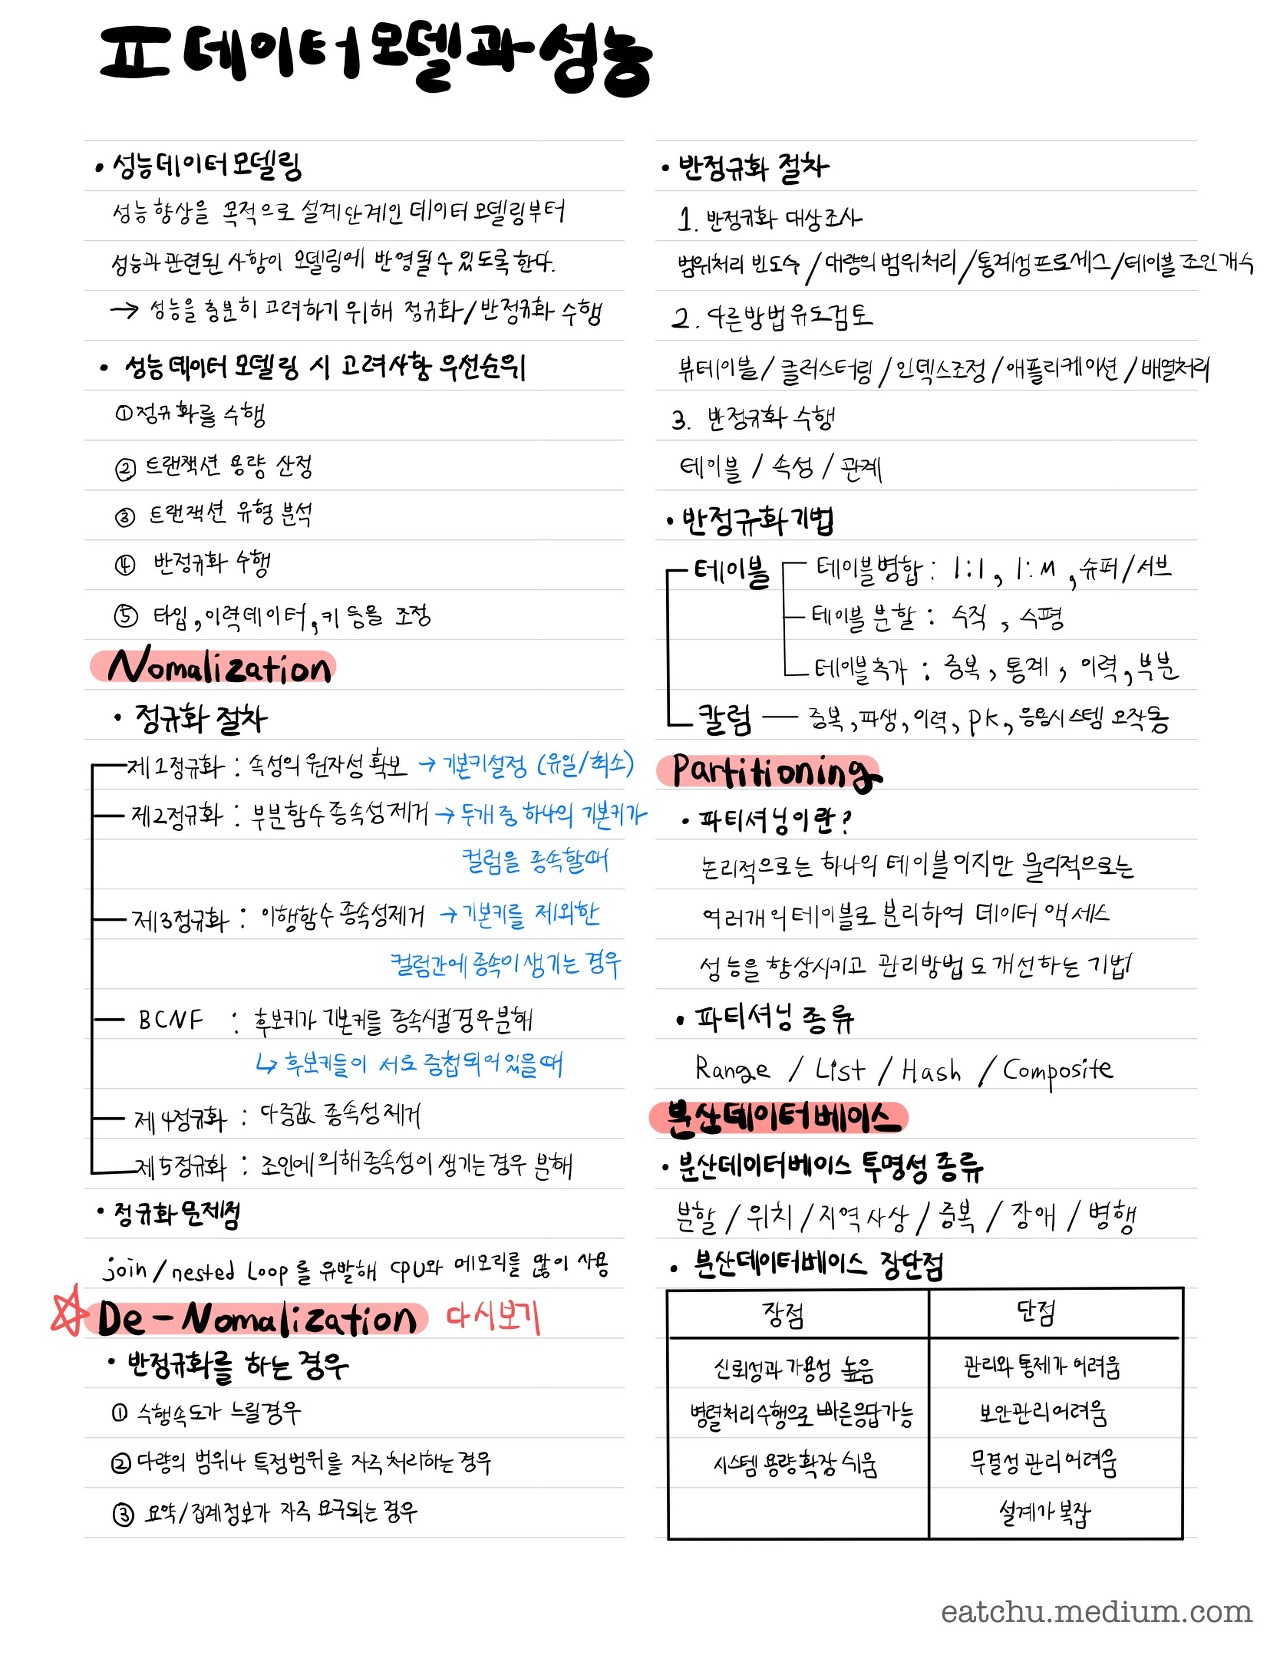 Ⅱ 데이터 모델과 성능
• 성능데이터 모델링
성능 향상을 목적으로 설계단계인 데이터 모델링부터
성능과 관련된 사항이 모델링에 반영될 수 있도록 한다.
→ 성능을 충분히 고려하기 위해 정규화/반정규화 수행
• 성능데이터 모델링 시 고려사항 우선순위
① 정규화를 수행
② 트랜잭션 용량 산정
③ 트랜잭션 유형 분석
④ 반정규화 수행
⑤ 타입, 이력데이터, 키 등을 조정
Nomalization
• 정규화 절차
제1정규화 : 속성의 원자성 확보 → 기본키설정 (유일/최소)
제2정규화 : 부분함수 종속성 제거 → 두개 중 하나의 기본키가
컬럼을 종속할때
제3정규화 : 이행함수 종속성제거 → 기본키를 제외한
컬럼간에 종속이 생기는 경우
BCNF : 후보키가 기본키를 종속시킬경우 분해
↳ 후보키들이 서로 중첩되어 있을때
제4정규화 : 다중값 종속성 제거
제5정규화 : 조인에 의해 종속성이 생기는 경우 분해
• 정규화 문제점
join/nested Loop를 유발해 CPU와 메모리를 많이 사용
☆ De-Nomalization 다시보기
• 반정규화를 하는 경우
① 수행속도가 느릴경우
② 다량의 범위나 특정범위를 자주 처리하는 경우
③ 요약/집계정보가 자주 요구되는 경우
• 반정규화 절차
1. 반정규화 대상조사
범위처리 빈도수/대량의 범위처리/통계성프로세스/테이블 조인개수
2. 다른방법유도검토
뷰테이블/클러스터링/인덱스조정/애플리케이션/배열처리
3. 반정규화 수행
테이블/속성/관계
• 반정규화기법
테이블 테이블병합 : 1:1, 1:M, 슈퍼/서브
테이블 분할 : 수직, 수평
테이블추가 : 중복, 통계, 이력, 부분
칼럼 — 중복, 파생, 이력, PK, 응용시스템 오작동
Partitioning
• 파티셔닝이란?
논리적으로는 하나의 테이블이지만 물리적으로는
여러개의 테이블로 분리하여 데이터 액세스
성능을 향상시키고 관리방법도 개선하는 기법
• 파티셔닝 종류
Range / List / Hash / Composite
분산데이터베이스
• 분산데이터베이스 투명성 종류
분할/위치/지역사상/중복/장애/병행
• 분산데이터베이스 장단점
장점 단점
신뢰성과 가용성 높음 관리와 통제가 어려움
병렬처리수행으로 빠른응답가능 보안관리어려움
시스템 용량 확장 쉬움 무결성 관리 어려움
설계가 복잡
eatchu.medium.com